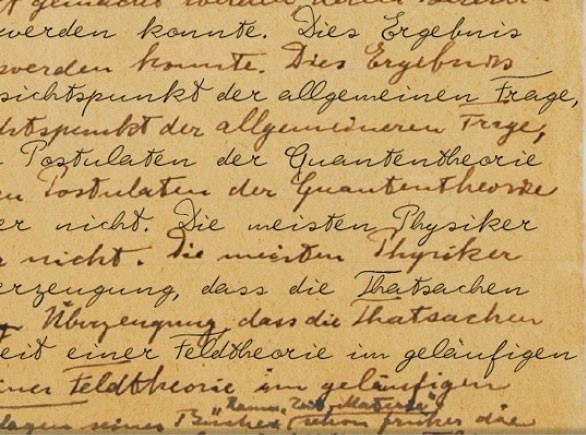 gemacht werden
werden konnte. Dies Ergebnis
werden konnte. Dies Ergebnis
sichtspunkt der allgemeinen Frage,
htspunkt der allgemeineren Frage,
Postulaten der Quantentheorie
en Postulaten der Quantentheorie
er nicht. Die meisten Physiker
r nicht. Die meisten Physiker
erzeugung, dass die Thatsachen
Überzeugung, dass die Thatsachen
eit einer Feldtheorie im geläufigen
iner Feldtheorie im geläufigen
"Raum, Zeit, Materie"
lagen seines Buches (schon früher